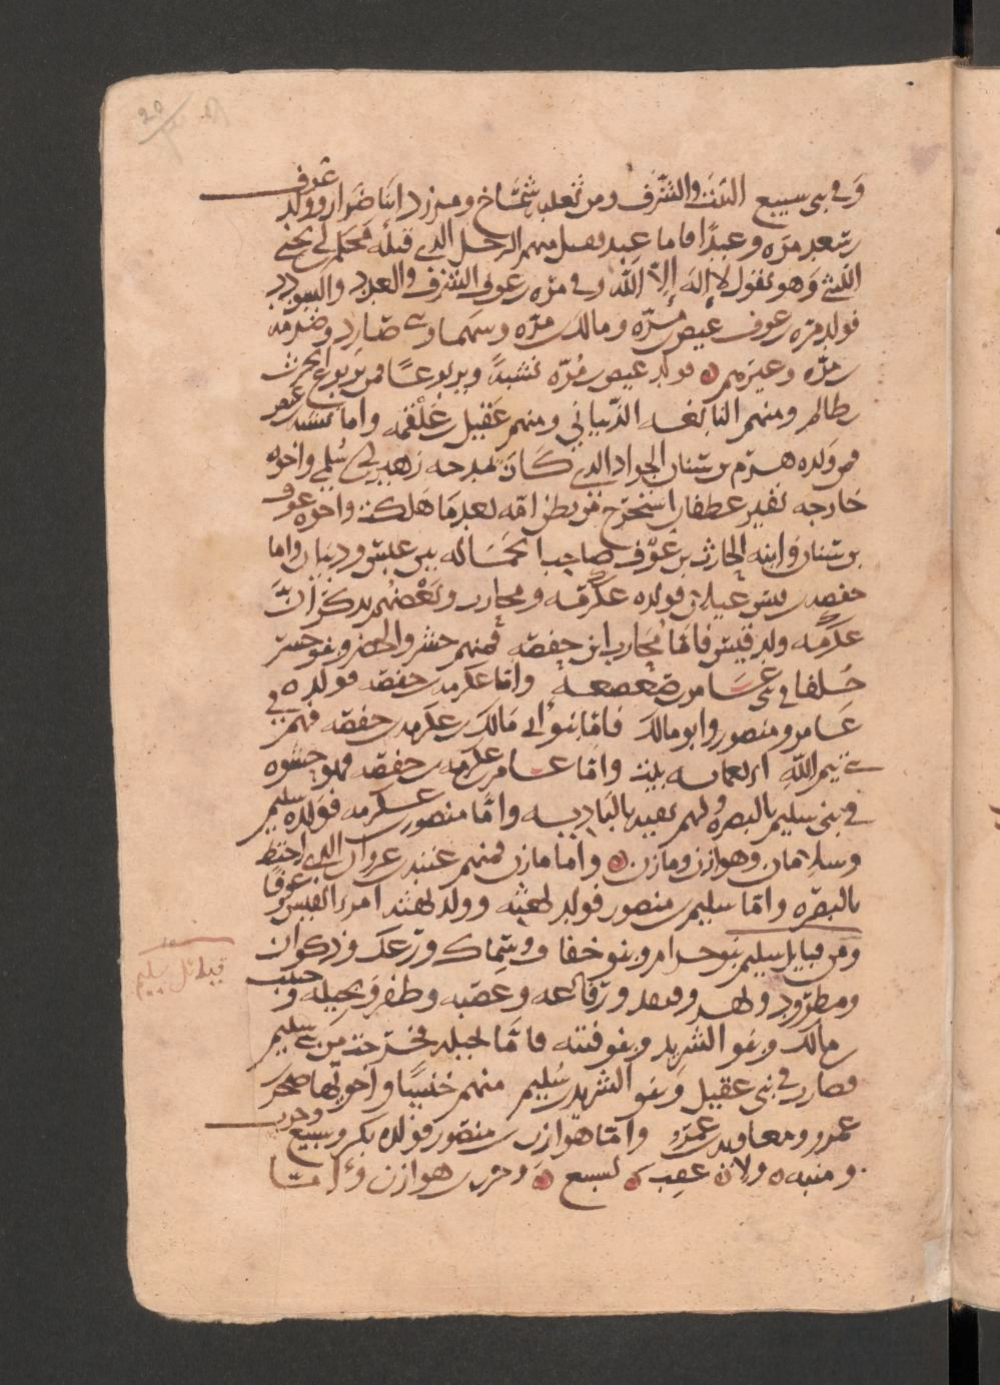 وفي بني سبيع البيت والشرف ومن ثعلبه شماخ ومزرد ابنا ضرار وولد عوف
بن سعد مره وعبدا فاما عبد منهم الرجل الذي قتله محلم بن
الليثي وهو يقول لا إله إلا الله وفي مره بن عوف الشرف والعدد والسودد
فولد مره بن عوف غيض بن مره ومالك بن مره وسهما و صارد وضرمه
بن مره وغيرهم فولد غيض بن مره نشبة ويربوعا فمن يربوع الحرث
بن ظالم ومنهم النابغه الذبياني ومنهم عقيل بن علفه واما نشبه بن غيض
فمن ولده هرم بن سنان الجواد الذي كان يمدحه زهير بن ابي سلمي واخوه
خارجه بقير غطفان استخرج من بطن امه بعد ما هلكت واخوه عوف
بن سنان وابنه الحارث بن عوف صاحب الحماله بين عبس وذبيان واما
خصفه بن قيس عيلان فولده عكرمه ومحارب وبعضهم يذكر ان
عكرمه ولد قيس فاما محارب ابن خصفه فمنهم جسر والخضر وبنو جسر
حلفا في بني عامر بن صعصعه واما عكرمه بن خصفه فولده
عامر ومنصور وابو مالك فاما بنو ابي مالك بن عكرمه بن خصفه فهم في
بني تيم الله واما عامر بن عكرمه بن خصفه فهو حشوه
في بني سليم بالبصره ولهم بقيه بالباديه واما منصور بن عكرمه فولده سليم
وسلامان وهوازن ومازن واما مازن فمنهم عتبه بن غزوان الذي اختط
بالبصره واما سليم بن منصور فولد بهثه وولد بهثه امرا القيس وعوفا
ومن قبايل سليم بنو حرام وبنو خفاف وسماك ورعل وذكوان
ومطرود وبهز وقنفذ ورفاعه وعصيه وظفر وبجيله وحبيب
بن مالك وبنو الشريد وبنو قتيه فاما بجيله فخرجت من بني سليم
فصارت في بني عقيل وبنو الشريد بن سليم منهم خنسا واخويها صخر
بن عمرو ومعاويه بن عمرو واما هوازن بن منصور فولده بكر وسبيع وحرب
ومنبه ولا عقب لسبيع وحرب بن هوازن واما
قبائل سليم